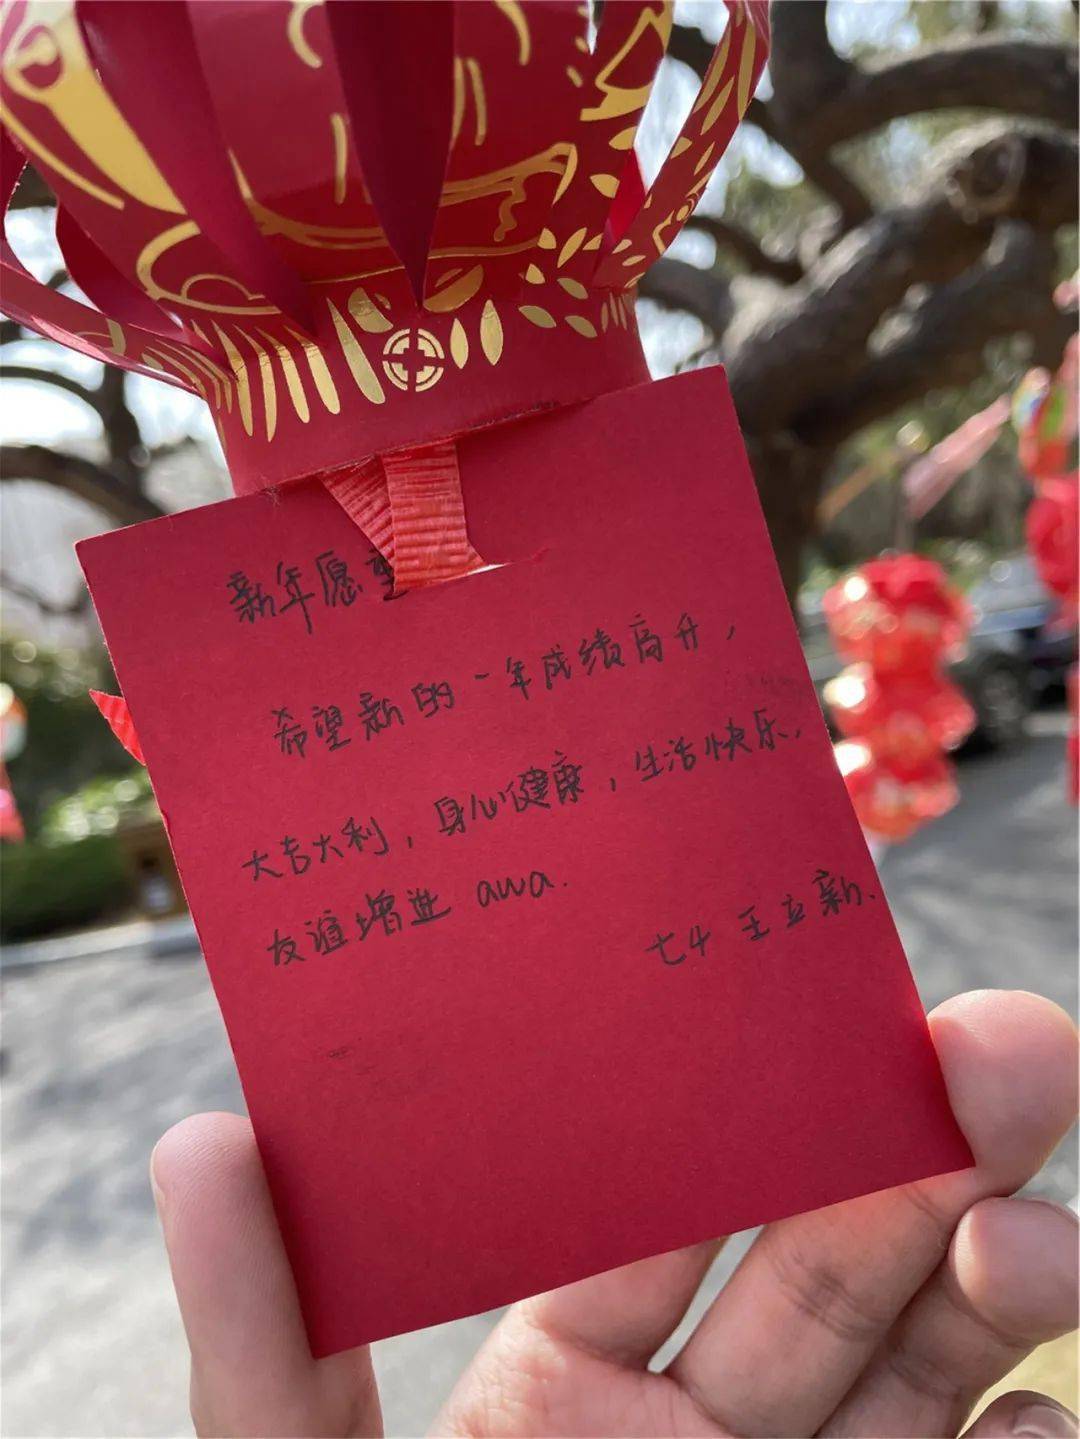 新年愿望
希望新的一年成绩高升，
大吉大利，身心健康，生活快乐，
友谊增进 awa.
七4 王立新、